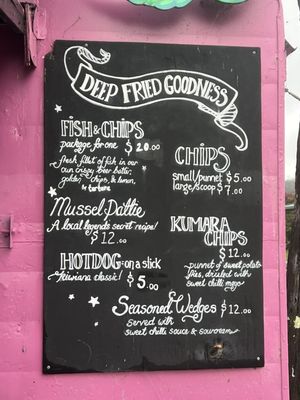 DEEP FRIED GOODNESS
FISH & CHIPS
package for one $20.00
fresh fillet of fish in our
own crispy beer batter,
golden chips, & lemon,
& tartare
CHIPS
small/punnet $5.00
large/scoop $7.00
Mussel Pattie
A local legends secret recipe!
$12.00
KUMARA
CHIPS
$12.00
punnet of sweet potato
fries, drizzled with
sweet chilli mayo
HOTDOG on a stick
kiwiana classic! $5.00
Seasoned Wedges $12.00
served with
sweet chilli sauce & sourcream